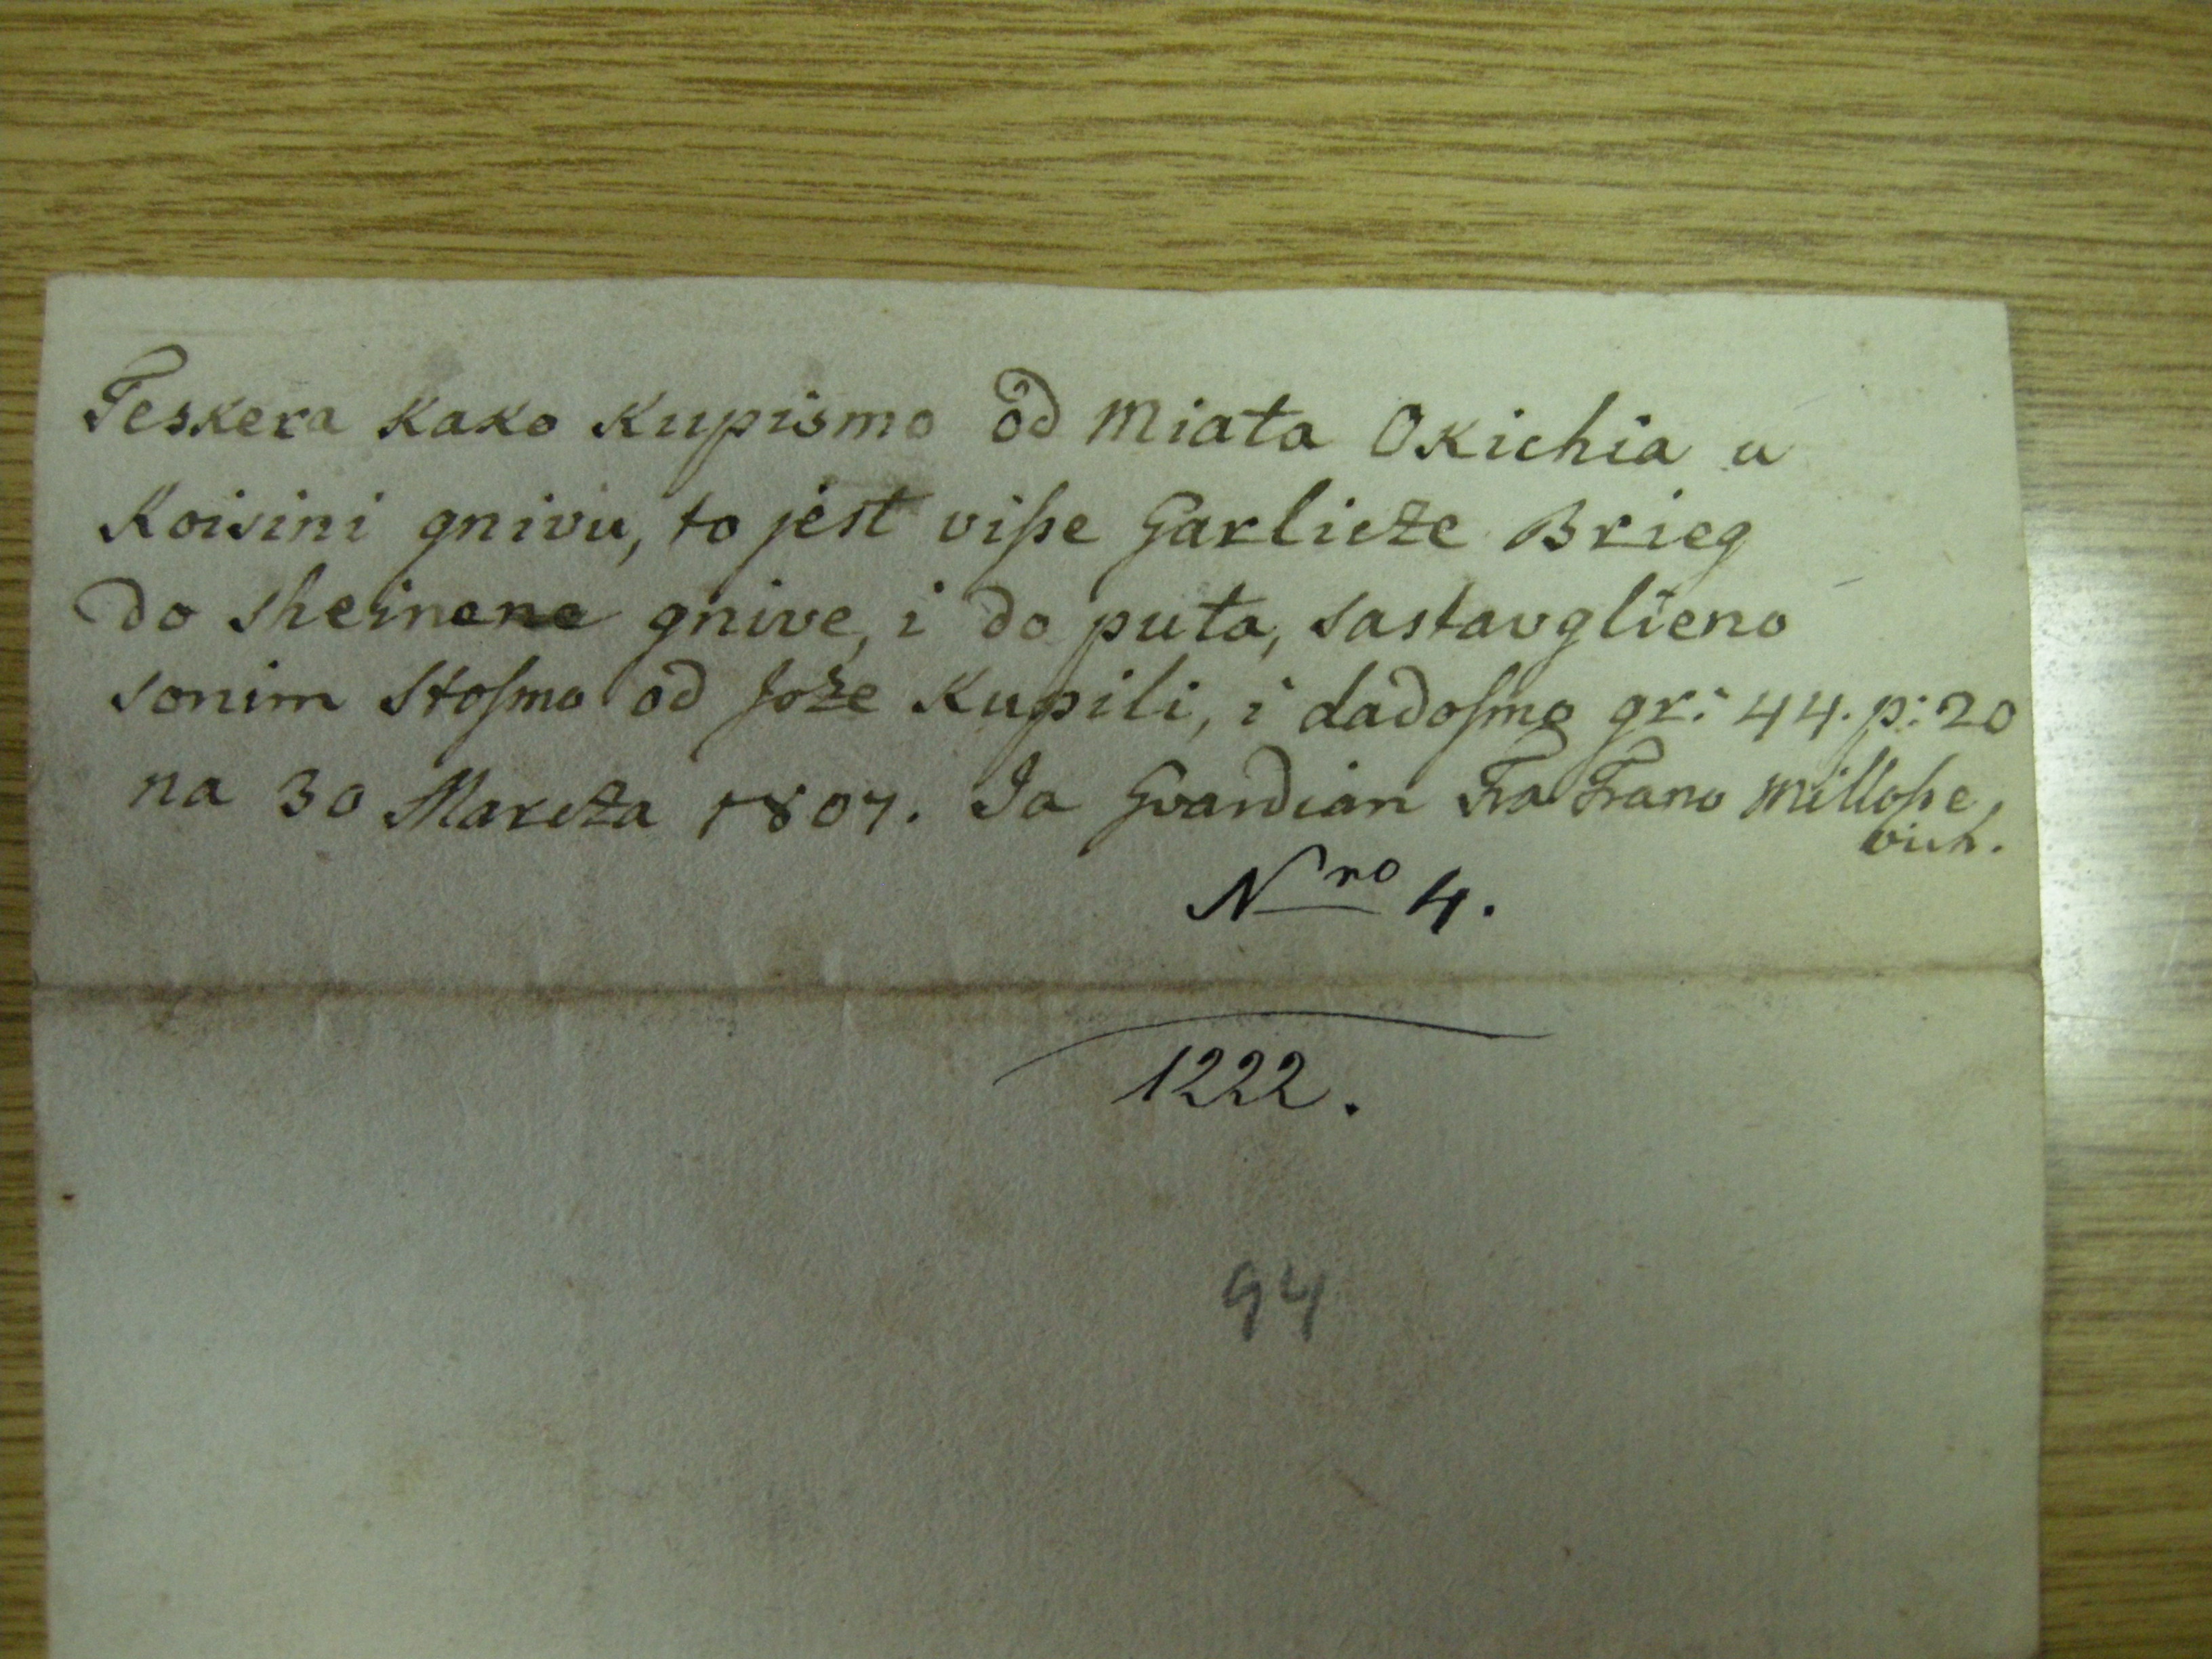 Teskera kako kupismo od Miata Okichia u
Koisini gnivu, to jest viſse Garlicze Brieg
do gnive, i do puta, sastavglieno
sonim stoſmo od Joze kupili, i dadoſmo gr: 44. p: 20
na 30 Marcza 1807. Ja Gvardian Fra Frano Milloſse,
vich.
Nro 4.
1222.
94